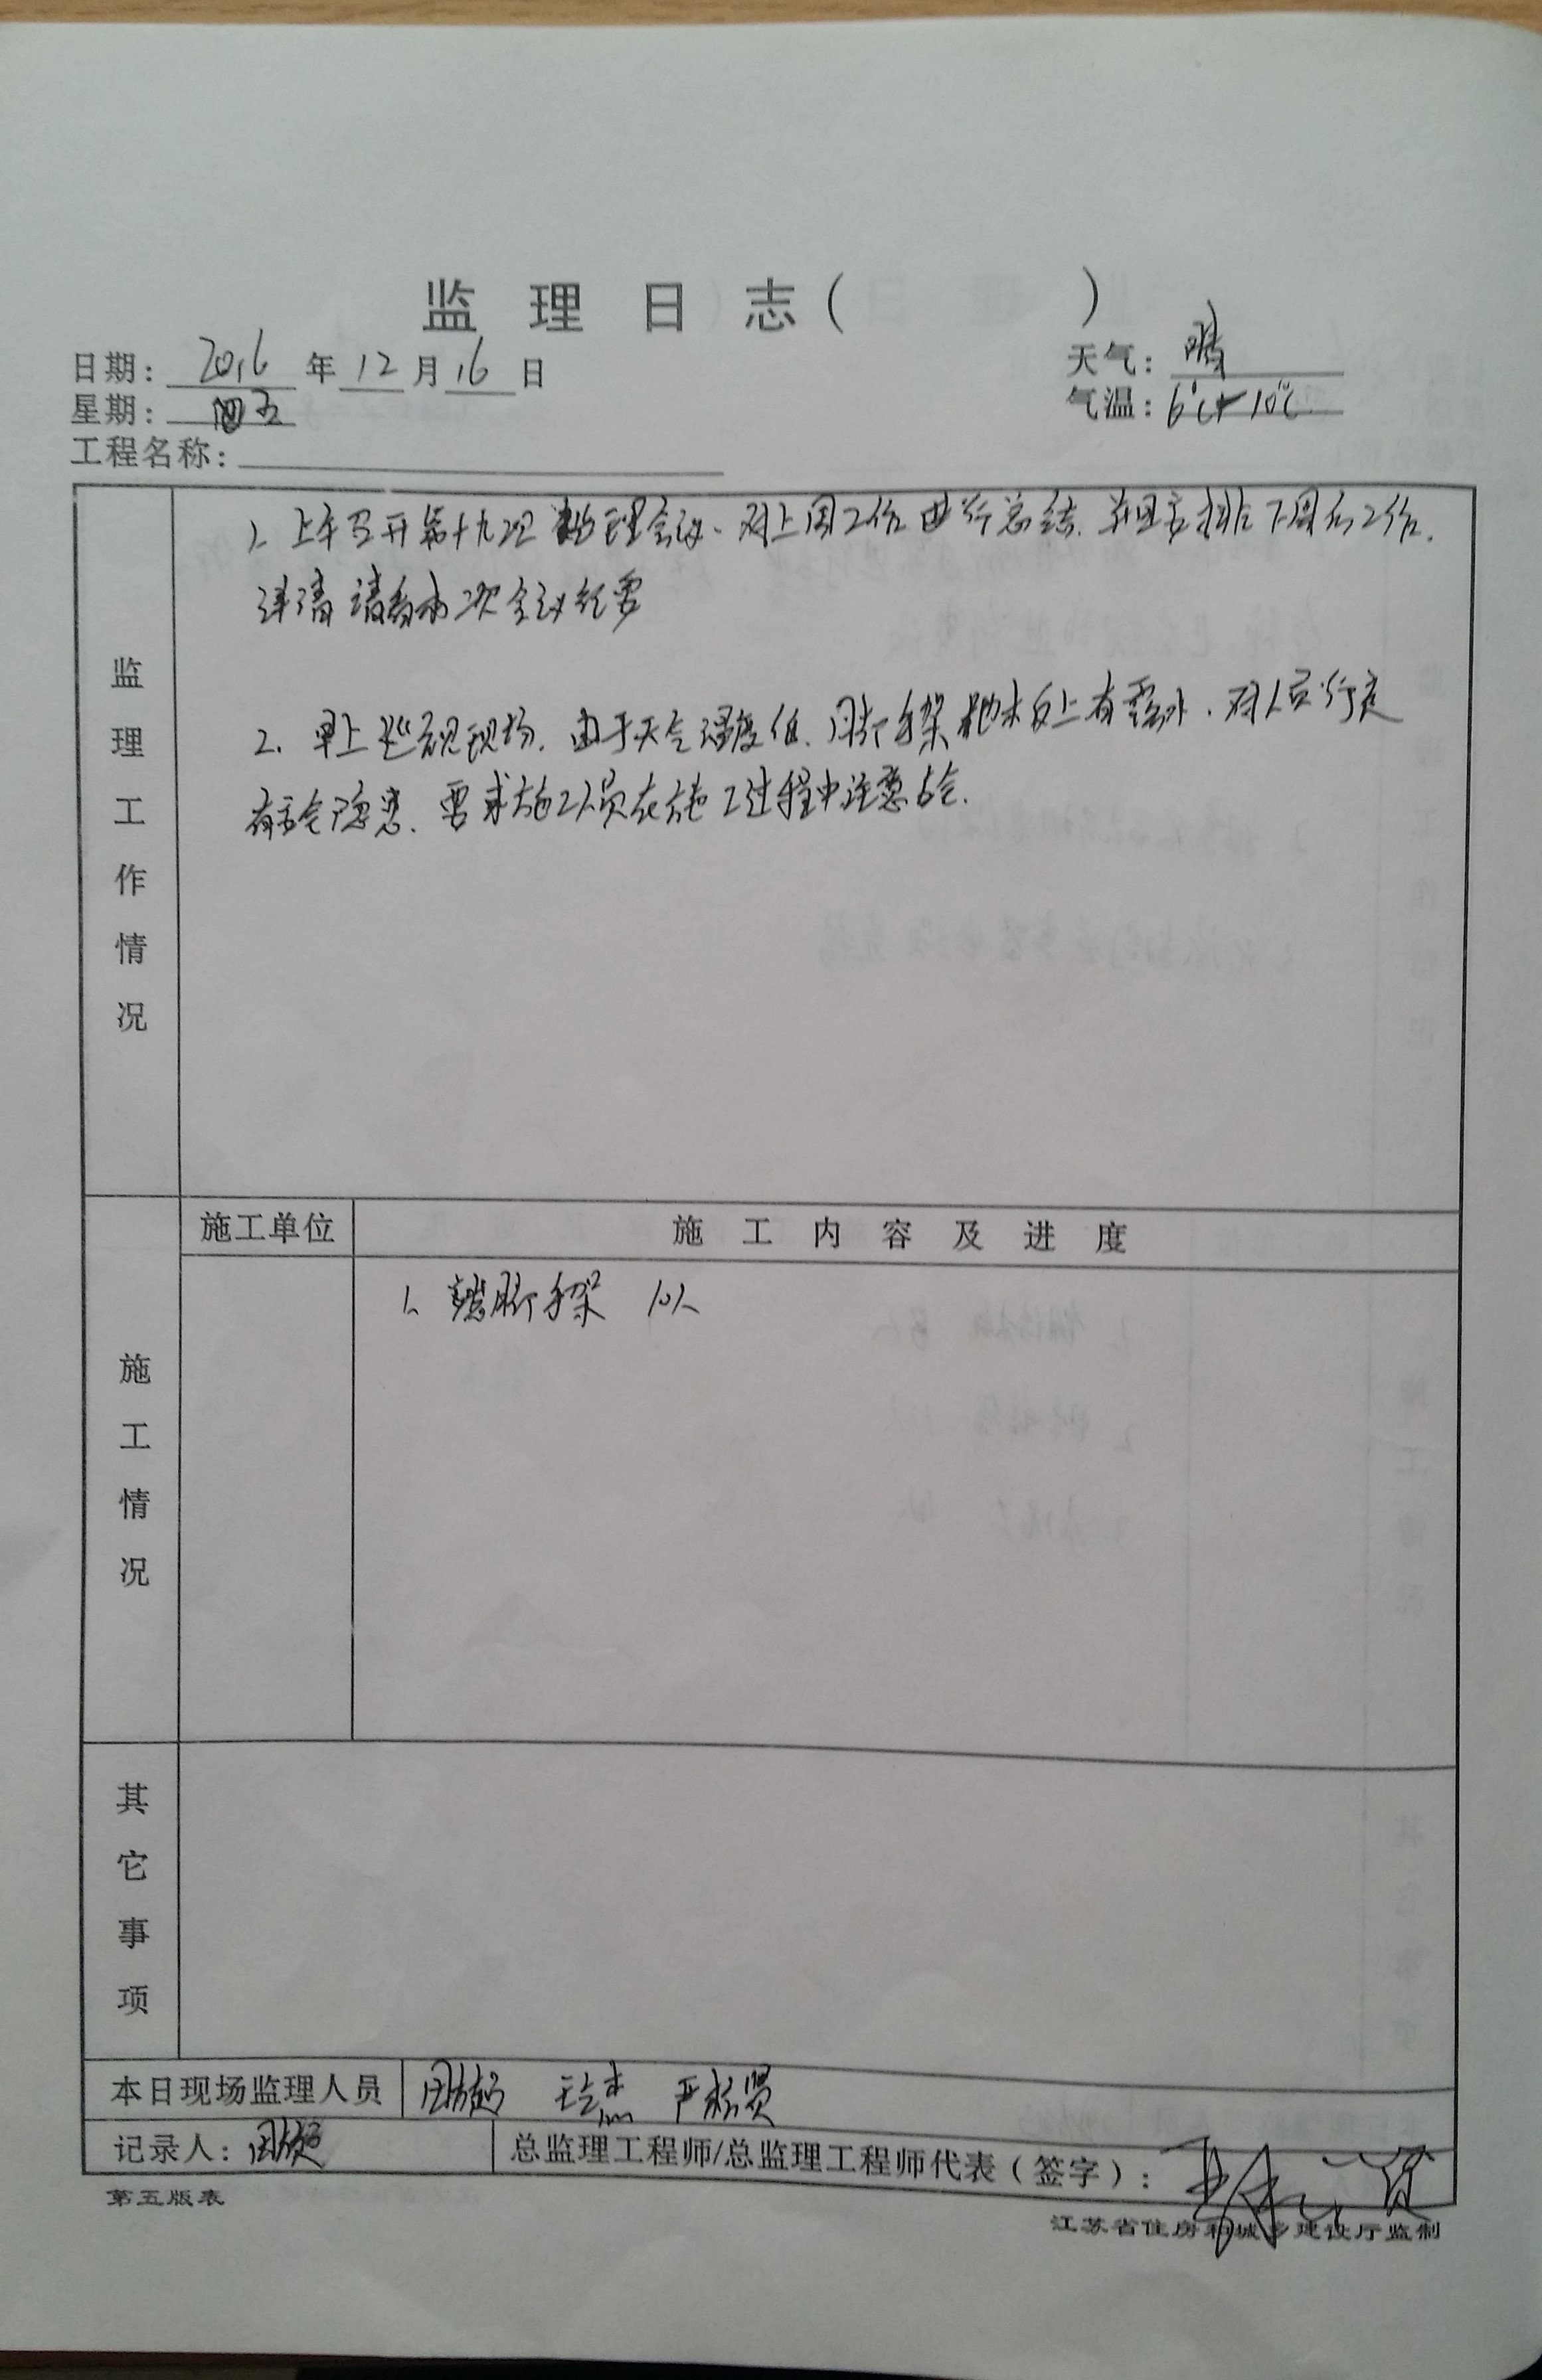 监 理 日 志 (        )
日期: 2016 年 12 月 16 日
天气: 晴
星期: 五
气温: 6℃ 10℃
工程名称:
1、上午召开第十九次监理会议、对上周工作进行总结、并且安排下周的工作.
详清请看本次会议纪要
2、早上巡视现场, 由于天气温度低, 脚手架 木板上有露水, 对人员行走
有安全隐患、要求施工人员在施工过程中注意安全.
监理工作情况
施工单位
施 工 内 容 及 进 度
1、 脚手架 10人
施工情况
其它事项
本日现场监理人员
记录人:
总监理工程师/总监理工程师代表(签字):
第五版表
江苏省住房和城乡建设厅监制